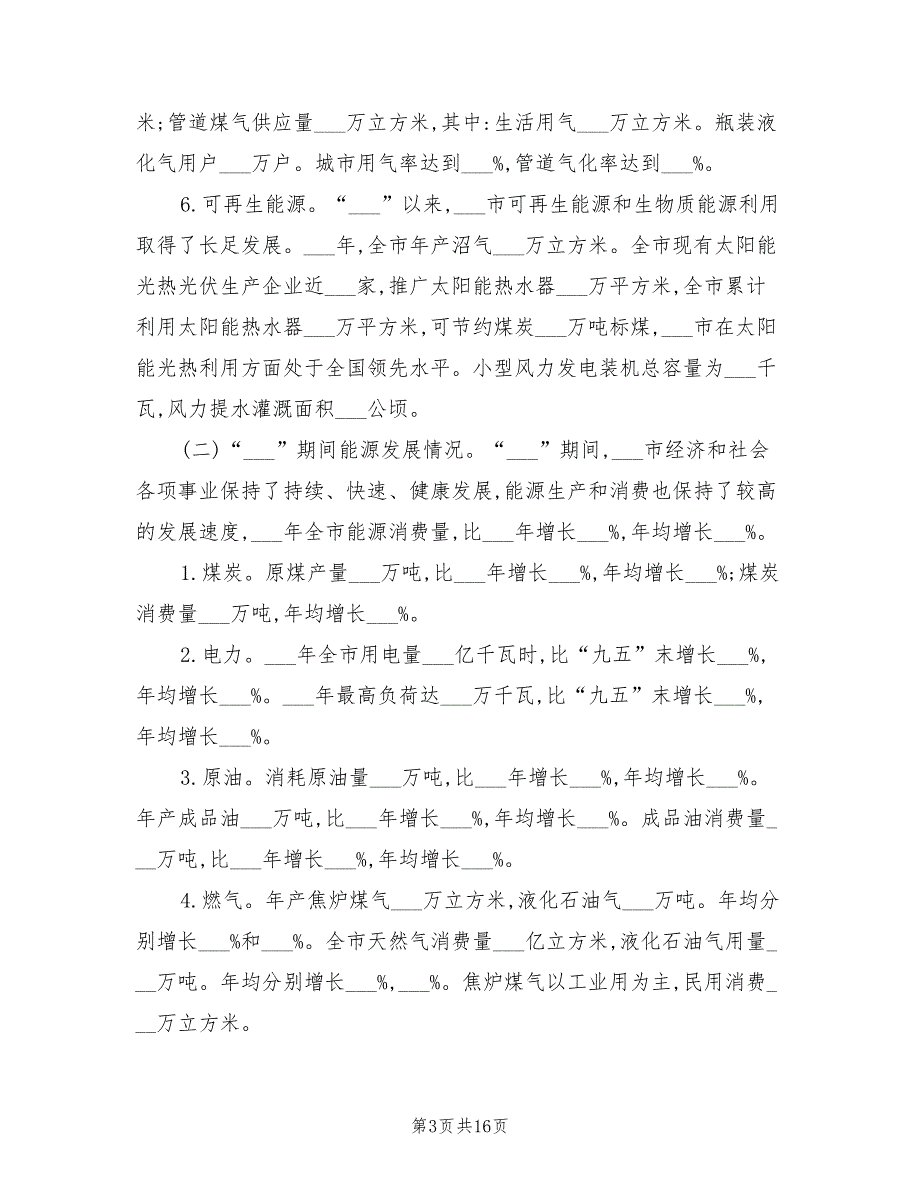 米;管道煤气供应量___万立方米,其中:生活用气___万立方米。瓶装液
化气用户___万户。城市用气率达到___%,管道气化率达到___%。
6.可再生能源。“___”以来,___市可再生能源和生物质能源利用
取得了长足发展。___年,全市年产沼气___万立方米。全市现有太阳能
光热光伏生产企业近___家,推广太阳能热水器___万平方米,全市累计
利用太阳能热水器___万平方米,可节约煤炭___万吨标煤,___市在太阳
能光热利用方面处于全国领先水平。小型风力发电装机总容量为___千
瓦,风力提水灌溉面积___公顷。
(二)“___”期间能源发展情况。“___”期间,___市经济和社会
各项事业保持了持续、快速、健康发展,能源生产和消费也保持了较高
的发展速度,___年全市能源消费量,比___年增长___%,年均增长___%。
1.煤炭。原煤产量___万吨,比___年增长___%,年均增长___%;煤炭
消费量___万吨,年均增长___%。
2.电力。___年全市用电量___亿千瓦时,比“九五”末增长___%,
年均增长___%。___年最高负荷达___万千瓦,比“九五”末增长___%,
年均增长___%。
3.原油。消耗原油量___万吨,比___年增长___%,年均增长___%。
年产成品油___万吨,比___年增长___%,年均增长___%。成品油消费量_
__万吨,比___年增长___%,年均增长___%。
4.燃气。年产焦炉煤气___万立方米,液化石油气___万吨。年均分
别增长___%和___%。全市天然气消费量___亿立方米,液化石油气用量_
__万吨。年均分别增长___%,___%。焦炉煤气以工业用为主,民用消费_
__万立方米。
第3页共16页